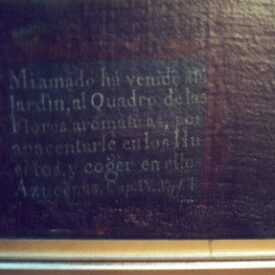 Mi amado há venido ah
Jardin, al Quadro de las
Flores aromaticas, por
apacentarle en los Hu
ertos, y coger en ellos
Azucenas. Cap. IV. Vers. I